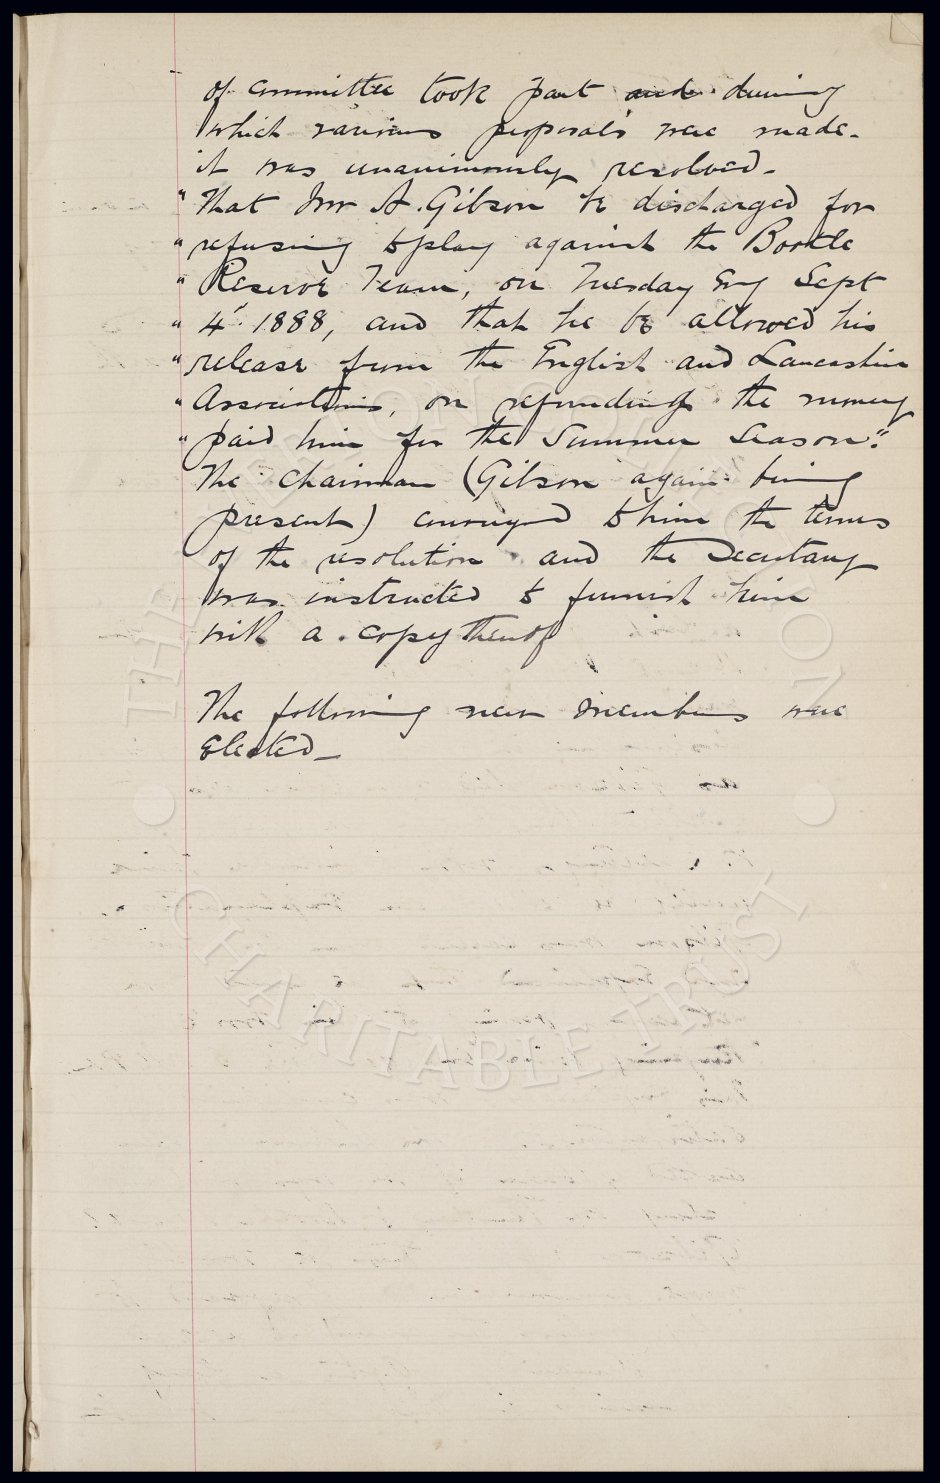 of committee took part and during
which various proposals were made.
it was unanimously resolved.
"That Mr A. Gibson be discharged for
"refusing to play against the Bootle
"Reserve Team, on Tuesday Evg Sept
"4' 1888, and that he be allowed his
"release from the English and Lancashire
"Associations, on refunding the money
"paid him for the Summer Season."
The Chairman (Gibson again being
present) conveyed to him the terms
of the resolution and the Secretary
was instructed to furnish him
with a copy thereof
The following new members were
elected—
THE EVERTON COLLECTION
CHARITABLE TRUST